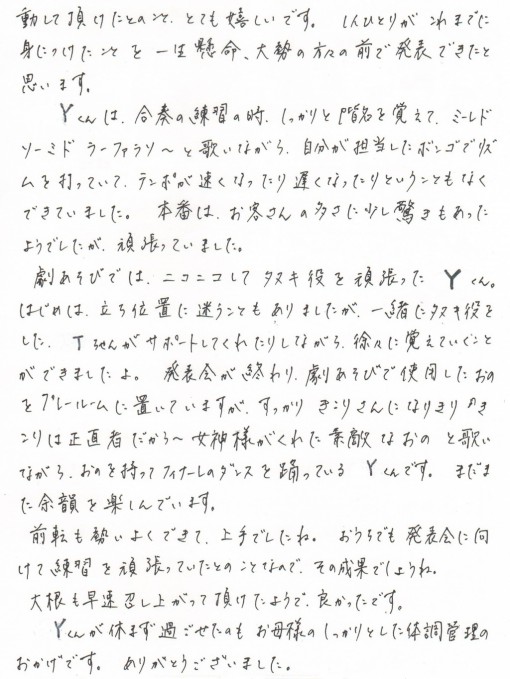 動して頂けたとのこと、とても嬉しいです。 1人ひとりが これまでに
身につけたことを 一生懸命、大勢の方々の前で発表できたと
思います。
Yくんは、合奏の練習の時、しっかりと階名を覚えて、ミーレド
ソーミド ラーファラソ〜と歌いながら、自分が担当したボンゴでリズ
ムを打っていて、テンポが速くなったり遅くなったりということもなく
できていました。 本番は、お客さんの多さに少し驚きもあった
ようでしたが、頑張っていました。
劇あそびでは、ニコニコして タヌキ役を頑張った Yくん。
はじめは、立ち位置に迷うこともありましたが、一緒にタヌキ役を
した、Tちゃんがサポートしてくれたりしながら、徐々に覚えていくこと
ができましたよ。 発表会が終わり、劇あそびで使用したおの
をプレールームに置いていますが、すっかり きこりさんになりきり♪き
こりは正直者だから〜女神様がくれた素敵なおの と歌い
ながら、おのを持ってフィナーレのダンスを踊っている Yくんです。 まだま
だ余韻を楽しんでいます。
前転も勢いよくできて、上手でしたね。 おうちでも発表会に向
けて練習を頑張っていたとのことなので、その成果でしょうね。
大根も早速召し上がって頂けたようで、良かったです。
Yくんが休まず過ごせたのも お母様のしっかりとした体調管理の
おかげです。 ありがとうございました。